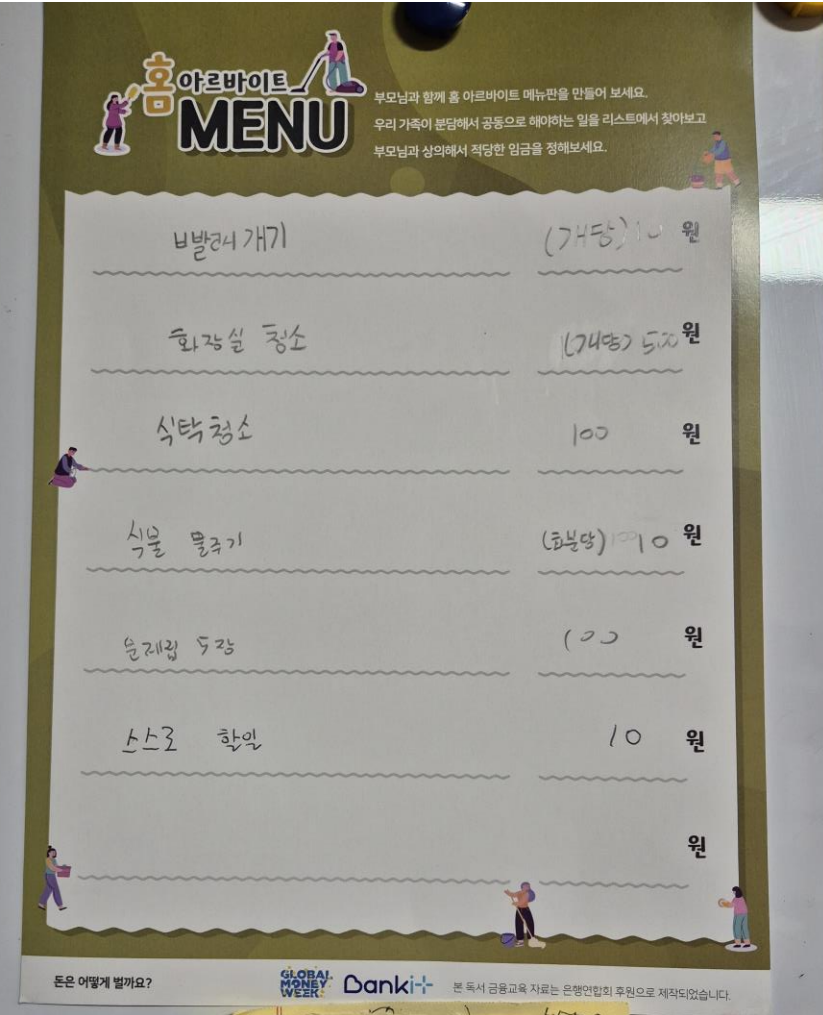 홈 아르바이트
MENU
부모님과 함께 홈 아르바이트 메뉴판을 만들어 보세요.
우리 가족이 분담해서 공동으로 해야하는 일을 리스트에서 찾아보고
부모님과 상의해서 적당한 임금을 정해보세요.
빨래 개기 (개당) 10 원
화장실 청소 (개당) 500 원
식탁 청소 100 원
식물 물주기 (화분당) 10 원
문제집 도장 100 원
스스로 할일 10 원
원
돈은 어떻게 벌까요?
GLOBAL
MONEY
WEEK
Banki+
본 독서 금융교육 자료는 은행연합회 후원으로 제작되었습니다.